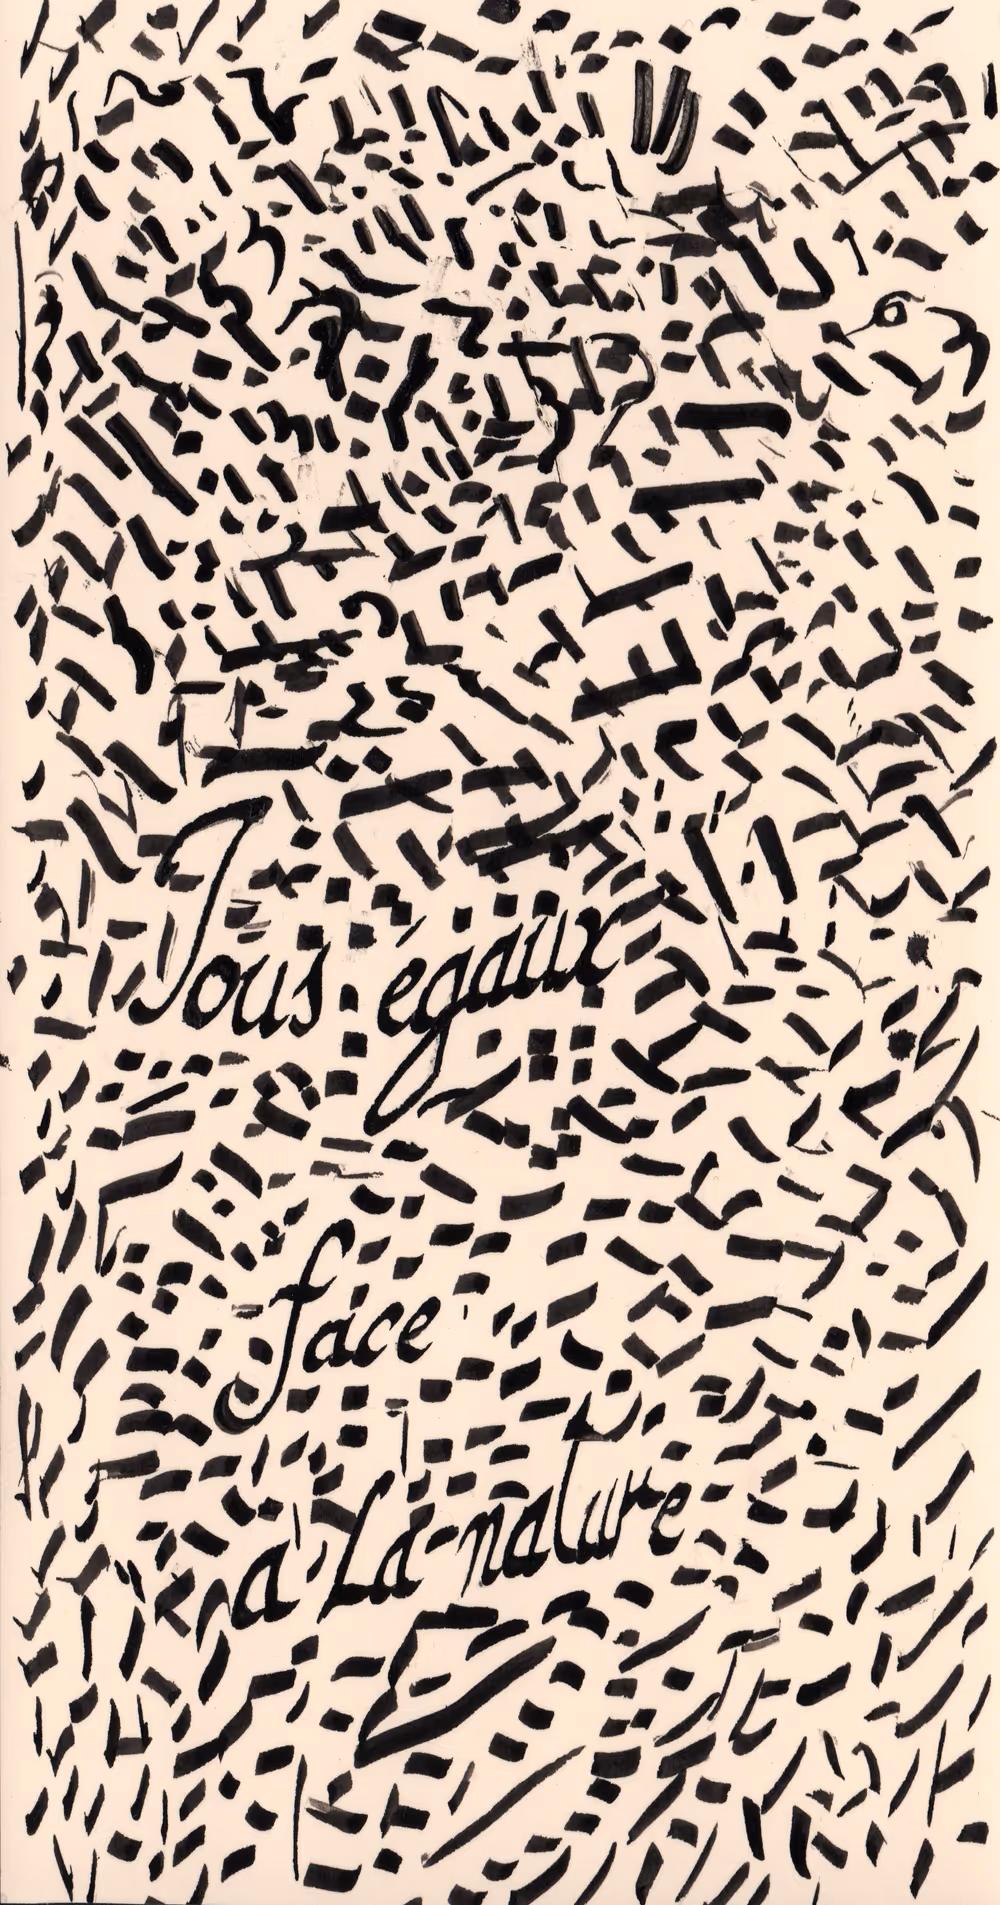 Tous egaux
face
a La-nature